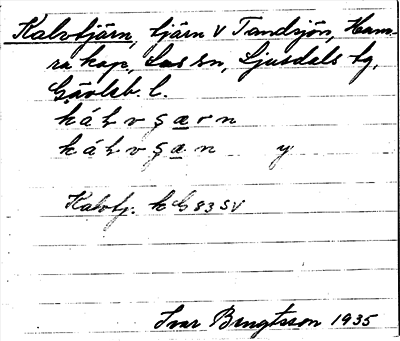 Kalvtjärn, tjärn V Tandsjön, Ham-
ra kap, Los sn, Ljusdals tg,
Gävleb. l.
k á l v ʂ æ r n
k á l v ʂ æ n y
Kalvtj. k G 83 SV
Ivar Bengtsson 1935